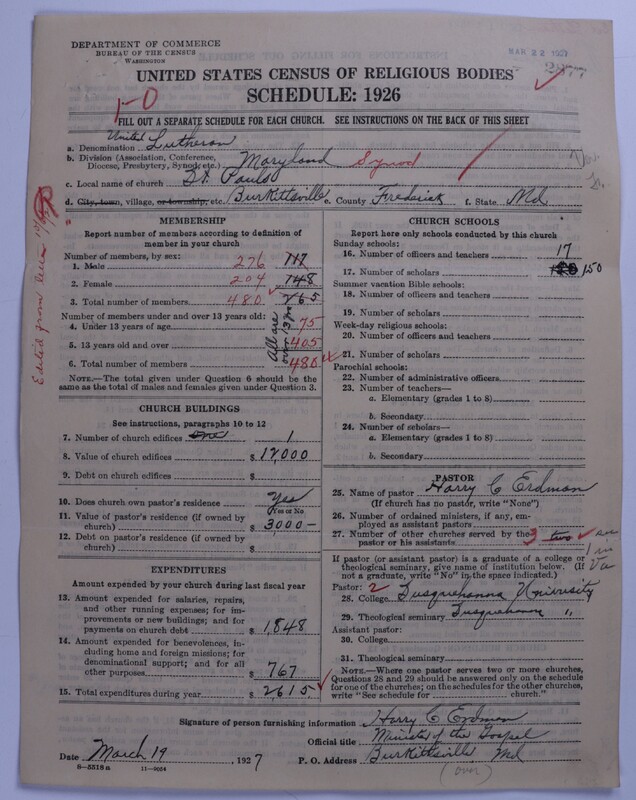 DEPARTMENT OF COMMERCE
BUREAU OF THE CENSUS
WASHINGTON
MAR 22 1927
UNITED STATES CENSUS OF RELIGIOUS BODIES
SCHEDULE: 1926
1-0
FILL OUT A SEPARATE SCHEDULE FOR EACH CHURCH. SEE INSTRUCTIONS ON THE BACK OF THIS SHEET
a. Denomination United Lutheran
b. Division (Association, Conference, Diocese, Presbytery, Synod, etc.) Maryland Synod
c. Local name of church St. Pauls
d. City, town, village, or township, etc. Burkittsville e. County Frederick f. State Md
Edited from letter
MEMBERSHIP
Report number of members according to definition of member in your church
Number of members, by sex:
1. Male 276 117
2. Female 204 148
3. Total number of members 480 265
Number of members under and over 13 years old:
All are over 13 yr
4. Under 13 years of age 75
5. 13 years old and over 405
6. Total number of members 480
NOTE.—The total given under Question 6 should be the same as the total of males and females given under Question 3.
CHURCH BUILDINGS
See instructions, paragraphs 10 to 12
7. Number of church edifices one 1
8. Value of church edifices $ 17,000
9. Debt on church edifices $
10. Does church own pastor's residence Yes
(Yes or No)
11. Value of pastor's residence (if owned by church) $ 3000—
12. Debt on pastor's residence (if owned by church) $
EXPENDITURES
Amount expended by your church during last fiscal year
13. Amount expended for salaries, repairs, and other running expenses; for improvements or new buildings; and for payments on church debt $ 1,848
14. Amount expended for benevolences, including home and foreign missions; for denominational support; and for all other purposes $ 767
15. Total expenditures during year $ 2615
CHURCH SCHOOLS
Report here only schools conducted by this church
Sunday schools:
16. Number of officers and teachers 17
17. Number of scholars 150
Summer vacation Bible schools:
18. Number of officers and teachers
19. Number of scholars
Week-day religious schools:
20. Number of officers and teachers
21. Number of scholars
Parochial schools:
22. Number of administrative officers
23. Number of teachers—
a. Elementary (grades 1 to 8)
b. Secondary
24. Number of scholars—
a. Elementary (grades 1 to 8)
b. Secondary
PASTOR
25. Name of pastor Harry C Erdman
(If church has no pastor, write "None")
26. Number of ordained ministers, if any, employed as assistant pastors
27. Number of other churches served by the pastor or his assistants 3 two
1 in Va
If pastor (or assistant pastor) is a graduate of a college or theological seminary, give name of institution below. (If not a graduate, write "No" in the space indicated.)
Pastor: 2
28. College Susquehanna University
29. Theological seminary Susquehanna "
Assistant pastor:
30. College
31. Theological seminary
NOTE.—Where one pastor serves two or more churches, Questions 28 and 29 should be answered only on the schedule for one of the churches; on the schedules for the other churches, write "See schedule for church."
Signature of person furnishing information Harry C Erdman
Official title Minister of the Gospel
Date March 19, 1927 P. O. Address Burkittsville, Md
8—5518a 11—9024
(over)